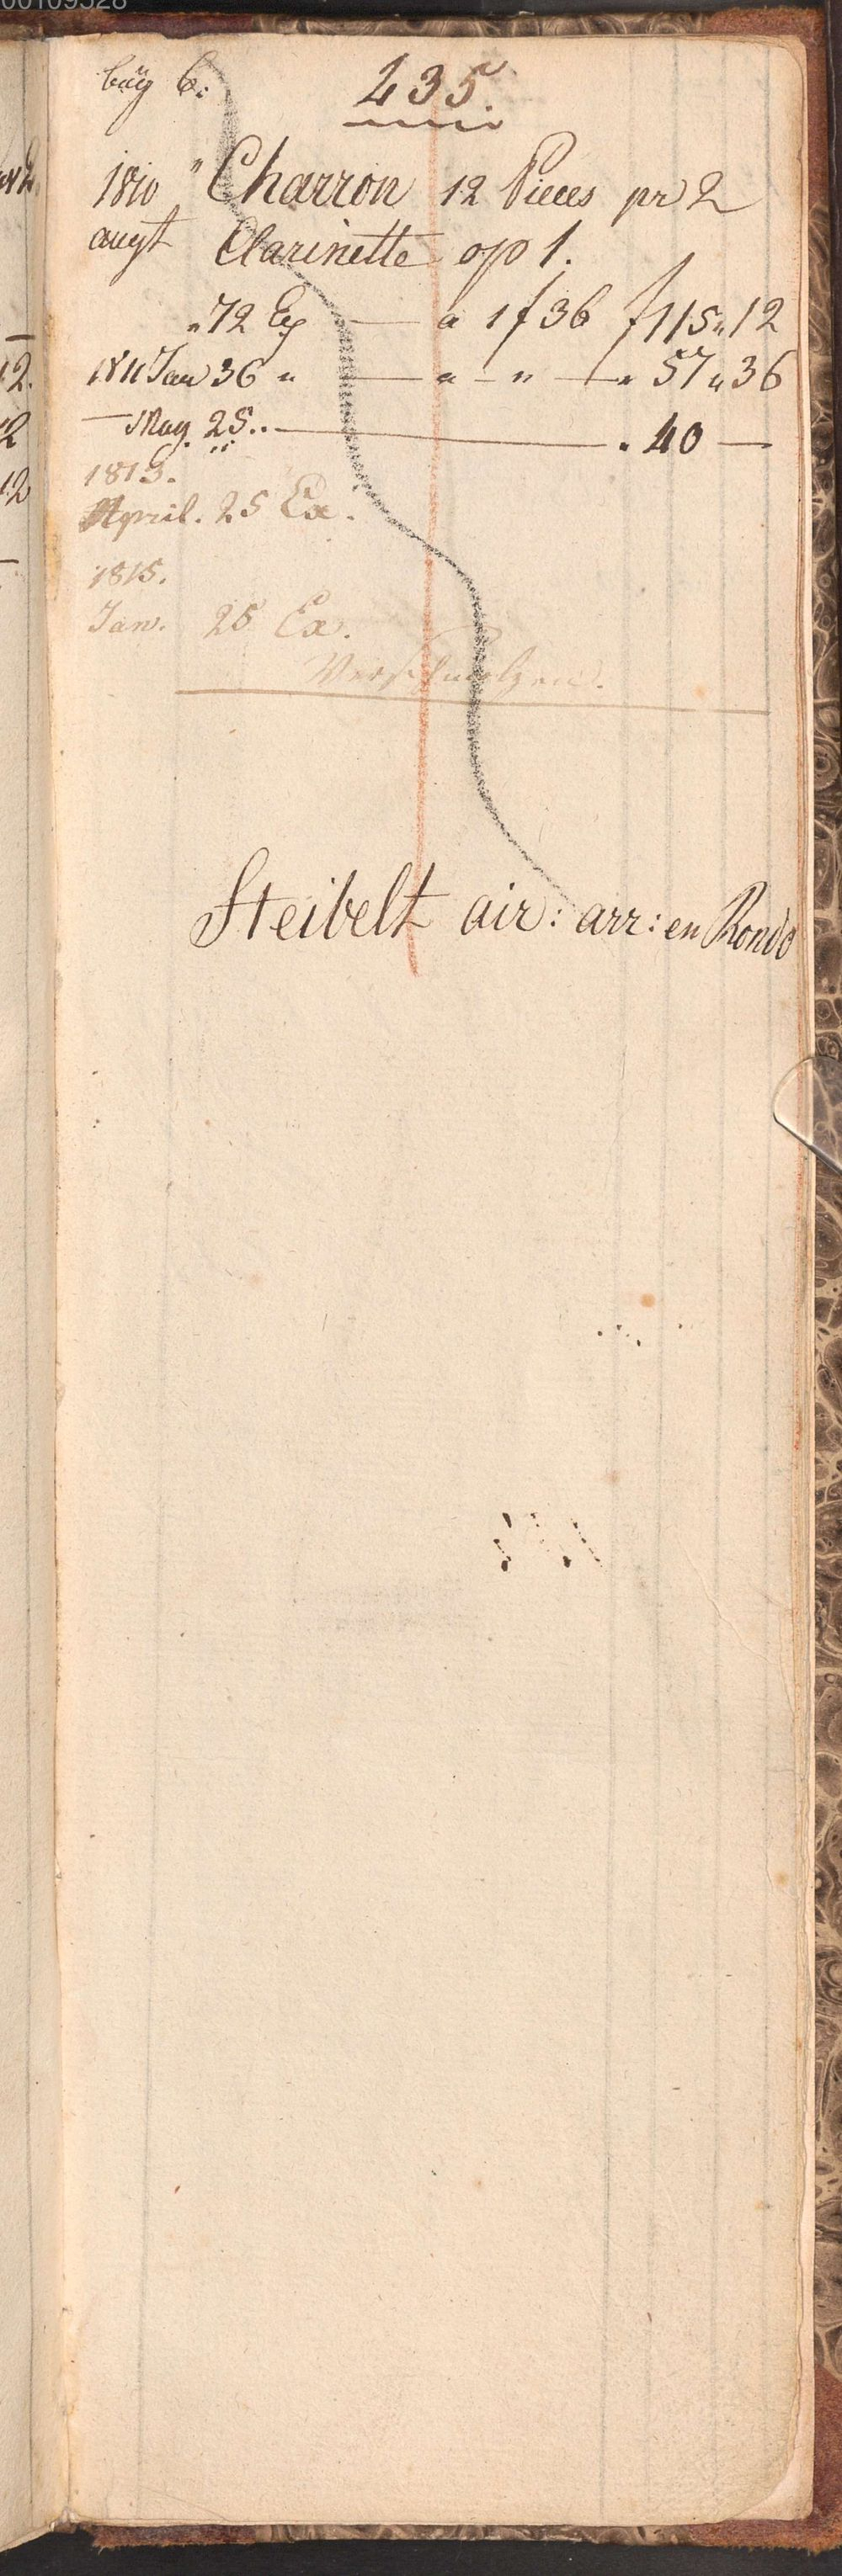 00109528
bög 6:
235.
1810 " Charron 12 Pieces pr 2
augt Clarinette op 1.
„ 72 Ex — a 1 f 36 f 115 „ 12
1811 Jan 36 „ — „ — „ — „ 57 „ 36
— May. 25 „ — „ 40 —
1813.
April. 25 Ex.
1815.
Jan. 25 Ex.
Verschmolzen.
Steibelt air: arr: en Rondo